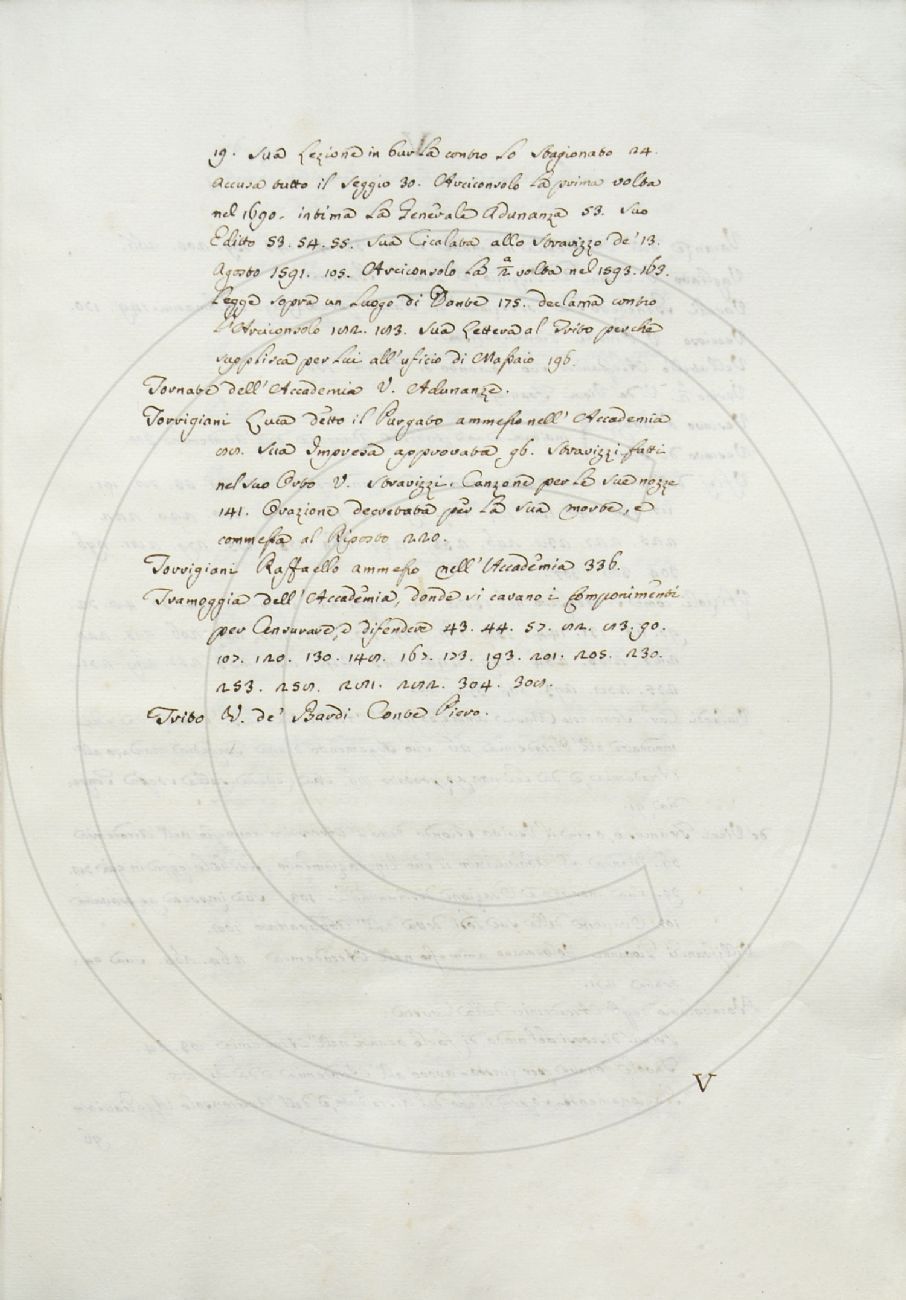 19. Sua Lezione in burla contro Lo Stagionato 24.
Accusa tutto il Seggio 30. Arciconsolo La prima volta
nel 1690. intima La Generale Adunanza 53. suo
Editto 53. 54. 55. sua Cicalata allo Stravizzo de' 13.
Agosto 1591. 105. Arciconsolo La 2.ª volta nel 1593. 163.
Legge sopra un Luogo di Dante 175. declama contro
L'Arciconsolo 182. 183. sua Lettera al Trito perchè
supplisca per Lui all'uficio di Massaio 196.
Tornate dell'Accademia V. Adunanze.
Torrigiani Luca detto il Purgato ammesso nell'Accademia
88. sua Impresa approvata 96. Stravizzi fatti
nel suo Orto V. Stravizzi. Canzone per Le sue nozze
141. Orazione decretata per La sua morte, e
commessa al Riposto 220.
Torrigiani Raffaello ammesso nell'Accademia 336.
Tramoggia dell'Accademia, donde si cavano i Componimenti
per Censurare, e difendere 43. 44. 57. 82. 83. 90.
107. 120. 130. 148. 167. 173. 193. 201. 205. 230.
253. 258. 281. 282. 304. 308.
Trito V. de' Bardi Conte Piero.
V